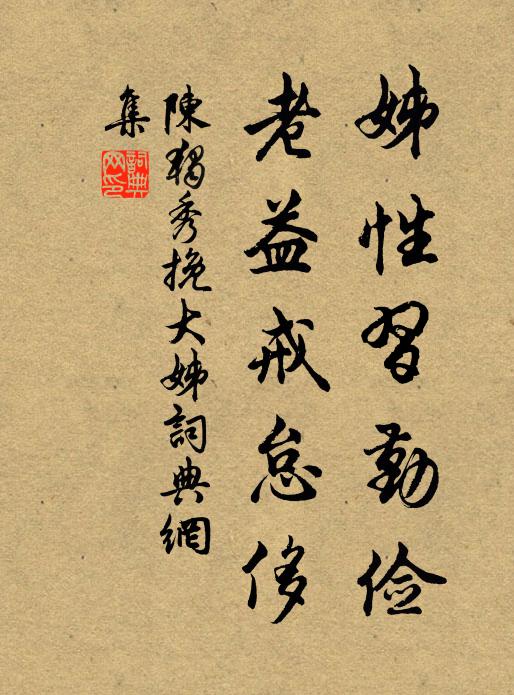 姊性習勤俭
老益戒怠侈
陳獨秀挽大姊詞典網
集
詞典網印